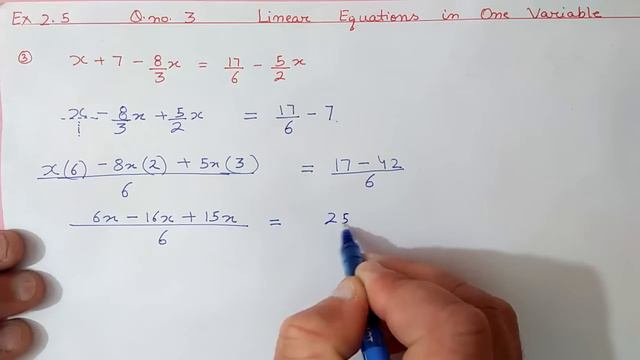 Ex 2.5 Q.no. 3 Linear Equations in One Variable
③ x + 7 - 8/3 x = 17/6 - 5/2 x
x/1 - 8/3 x + 5/2 x = 17/6 - 7
x(6) - 8x(2) + 5x(3) / 6 = 17 - 42 / 6
6x - 16x + 15x / 6 = 25